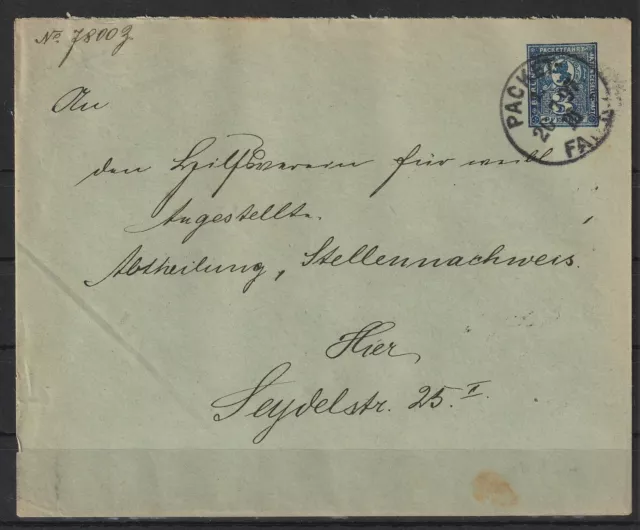 No 7800
PACKETFAHRT
3
PACKET
FA
An
den Hilfsverein für weibl
Angestellte.
Abtheilung, Stellennachweis.
Hier
Seydelstr. 25. I